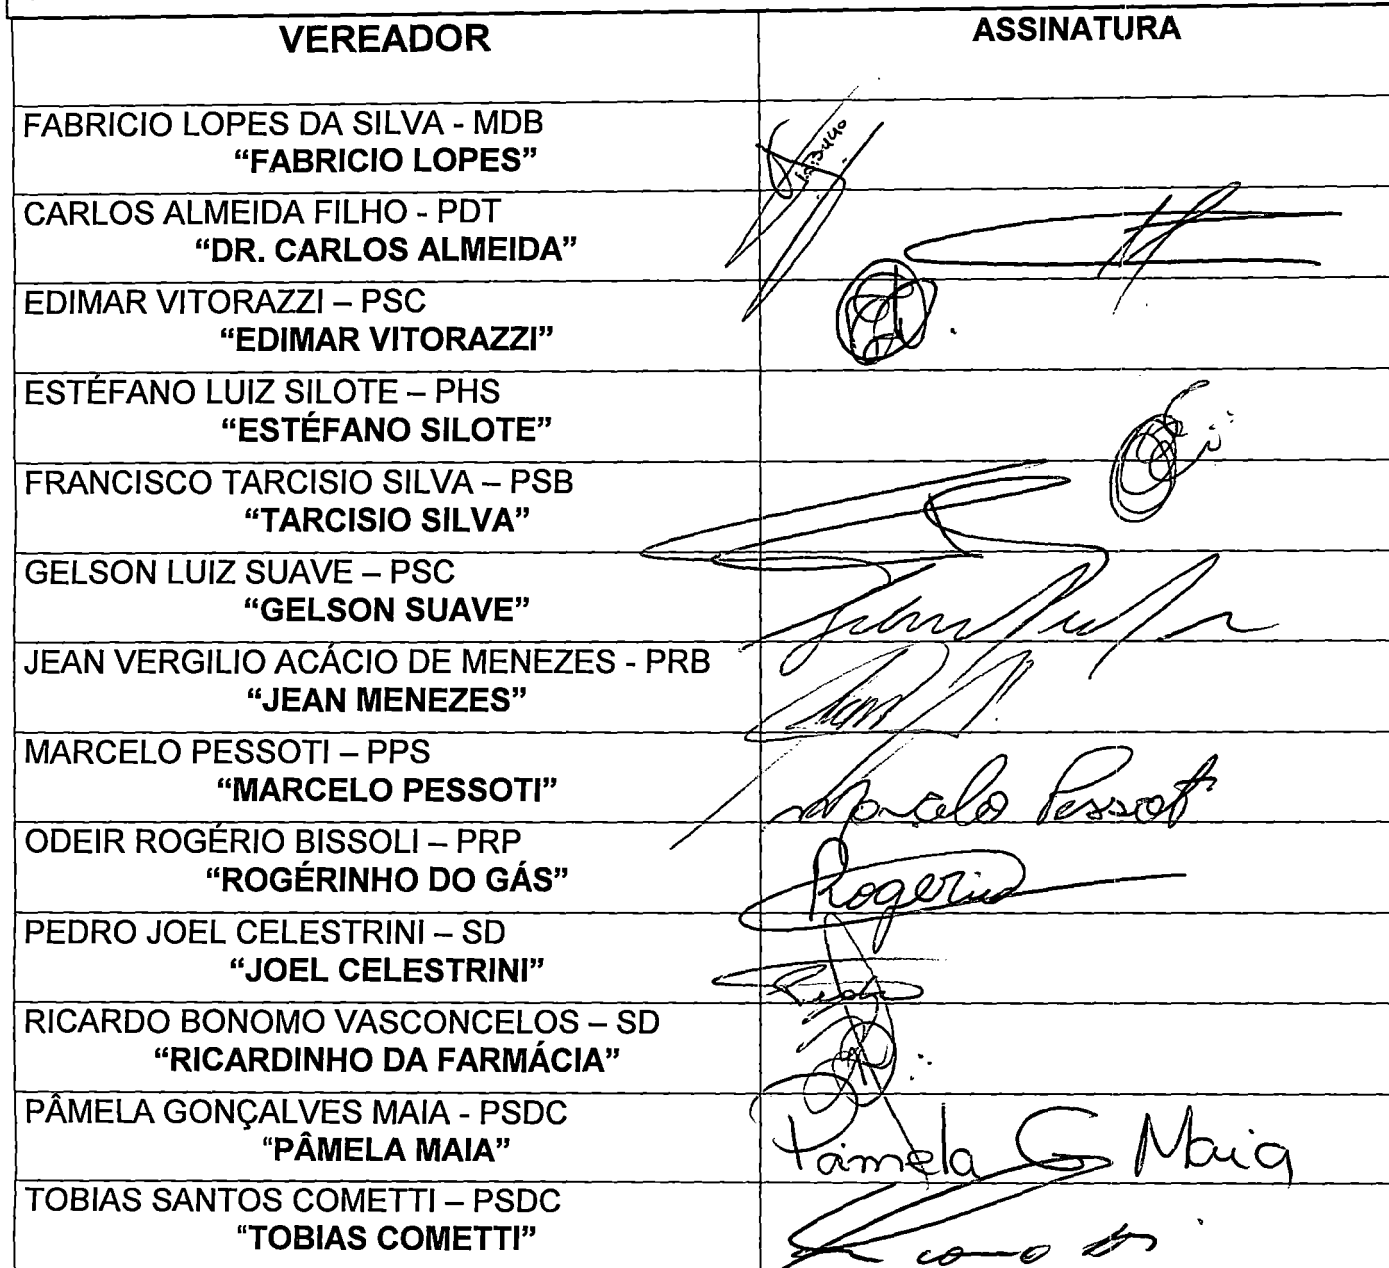 VEREADOR
ASSINATURA
FABRICIO LOPES DA SILVA - MDB
“FABRICIO LOPES”
CARLOS ALMEIDA FILHO - PDT
“DR. CARLOS ALMEIDA”
EDIMAR VITORAZZI – PSC
“EDIMAR VITORAZZI”
ESTÉFANO LUIZ SILOTE – PHS
“ESTÉFANO SILOTE”
FRANCISCO TARCISIO SILVA – PSB
“TARCISIO SILVA”
GELSON LUIZ SUAVE – PSC
“GELSON SUAVE”
JEAN VERGILIO ACÁCIO DE MENEZES - PRB
“JEAN MENEZES”
MARCELO PESSOTI – PPS
“MARCELO PESSOTI”
Marcelo Pessoti
ODEIR ROGÉRIO BISSOLI – PRP
“ROGÉRINHO DO GÁS”
PEDRO JOEL CELESTRINI – SD
“JOEL CELESTRINI”
RICARDO BONOMO VASCONCELOS – SD
“RICARDINHO DA FARMÁCIA”
PÂMELA GONÇALVES MAIA - PSDC
“PÂMELA MAIA”
Pâmela G Maia
TOBIAS SANTOS COMETTI – PSDC
“TOBIAS COMETTI”